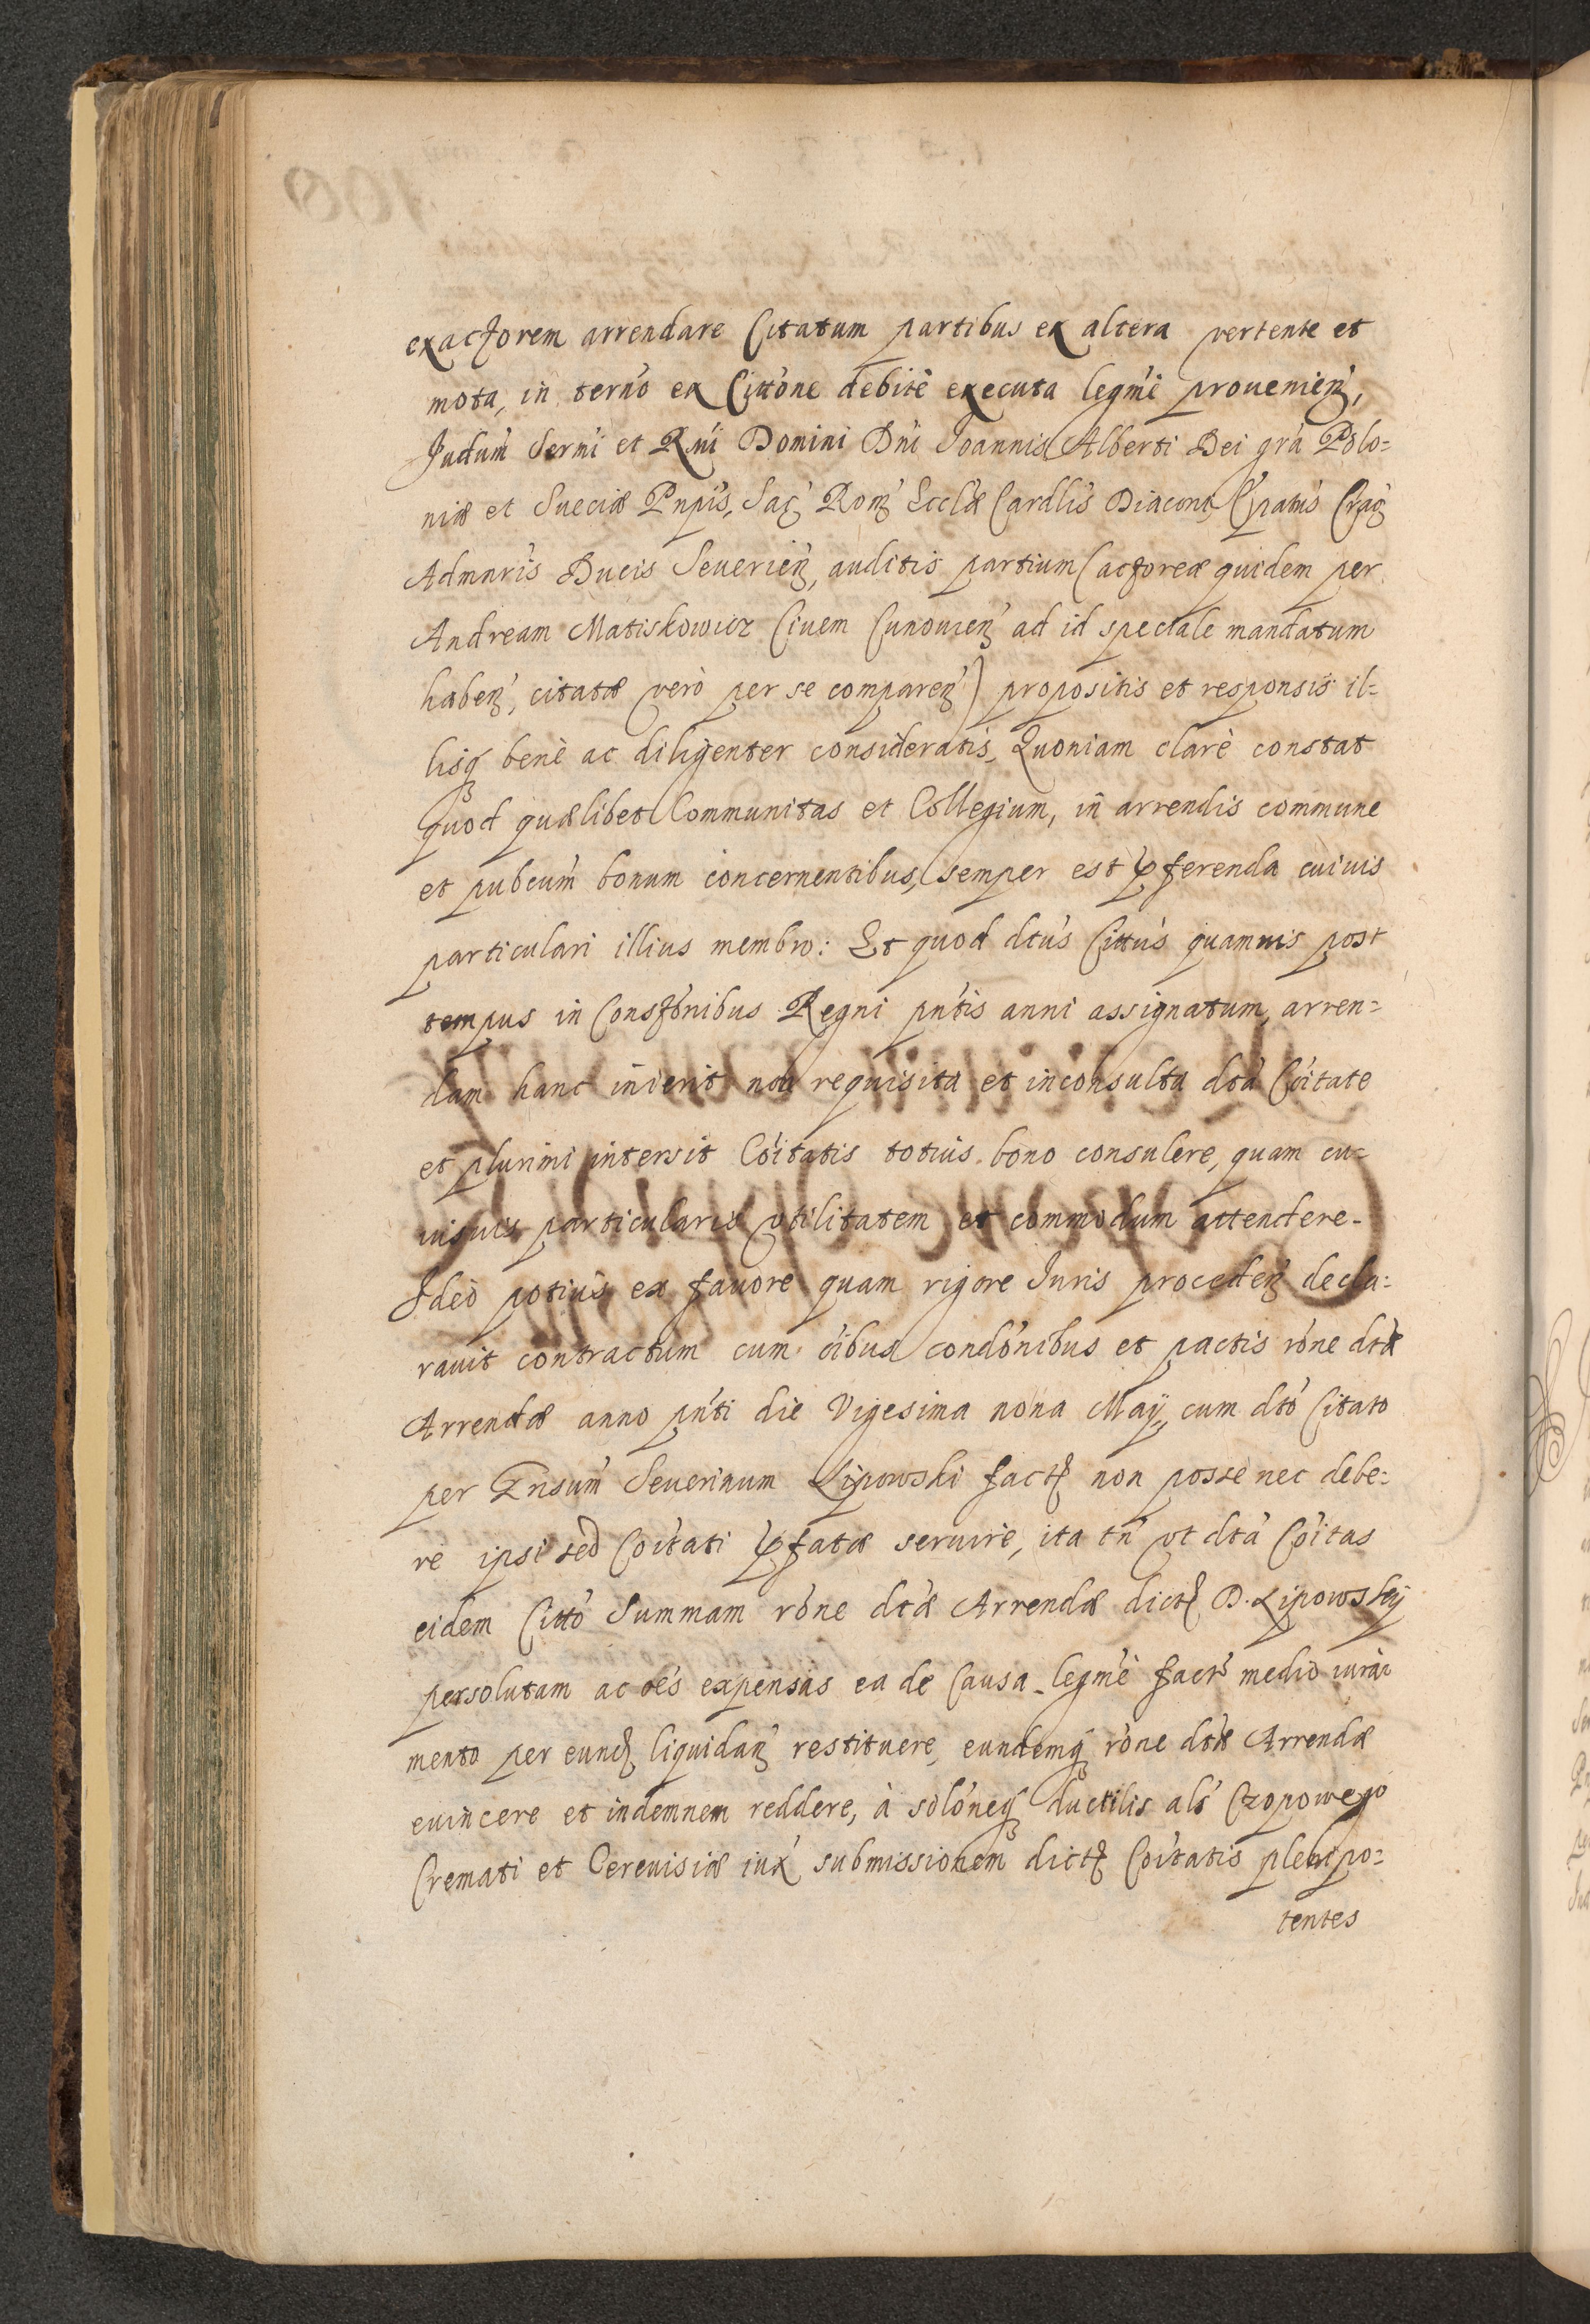 exactorem arrendare Citatum partibus ex altera vertente et
mota, in termo ex Cittone debitè executa legmè prouenien,
Judum Sermi et Rmi Domini Dni Joannis Alberti Dei gra Polo=
niæ et Sueciæ Pnpis, Sac Rom Ecclæ Cardlis Diaconi, Epatus Crac
Admnris Ducis Seuerien, auditis partium (actoreæ quidem per
Andream Matiskowicz Ciuem Cunouien ad id speciale mandatum
haben, citatæ verò per se comparen) propositis et responsis il=
lisq benè ac diligenter consideratis, Quoniam clarè constat
quod quælibet Communitas et Collegium, in arrendis commune
et pubcum bonum concernentibus, semper est pferenda cuiuis
particulari illius membro: Et quod dtus Cittus quamuis post
tempus in Constonibus Regni pntis anni assignatum, arren=
dam hanc inierit non requisita et inconsulta dta Coitate
et plurimi intersit Coitatis totius bono consulere, quam cu=
iusuis particularis vtilitatem et commodum attendere.
Ideò potius ex fauore quam rigore Juris proceden decla=
rauit contractum cum oibus condonibus et pactis rone dtæ
Arrendæ anno pnti die Vigesima nona Maij, cum dto Citato
per Gnsum Seuerinum Lipowski fact non posse nec debe=
re ipsi sed Coitati pfatæ seruire, ita tn vt dta Coitas
eidem Citto Summam rone dtæ Arrendæ dict D. Lipowskij
persolutam ac oes expensas ea de Causa legmè fact medio iura
mento per eund liquidan restituere, eundemq rone dtæ Arrendæ
euincere et indemnem reddere, à soloneq ductilis als Czopowego
Cremati et Cereuisiæ iux submissionem dict Coitatis plenipo=
tentes